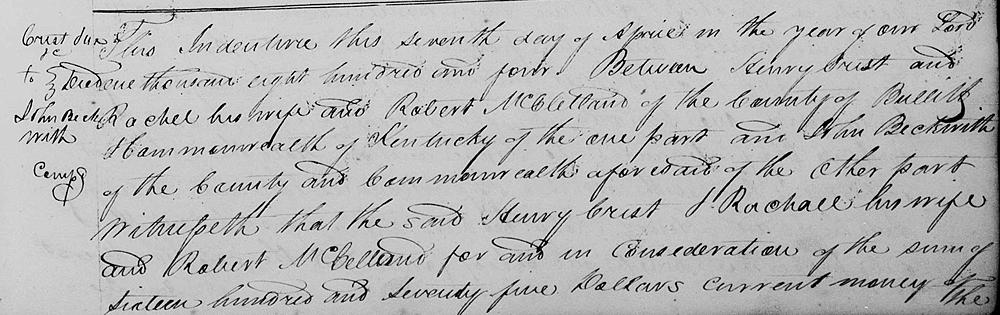 Crist &ux &c
to } Deed
John Beck
with
Comp^d
This Indenture this seventh day of April in the year of our Lord
one thousand eight hundred and four Between Henry Crist and
Rachel his wife and Robert McClelland of the County of Bullitt
& Commonwealth of Kentucky of the one part and John Beckwith
of the County and Commonwealth aforesaid of the Other part
Witnesseth that the said Henry Crist & Rachall his wife
and Robert McClelland for and in Consideration of the sum of
sixteen hundred and seventy five Dollars current money of the